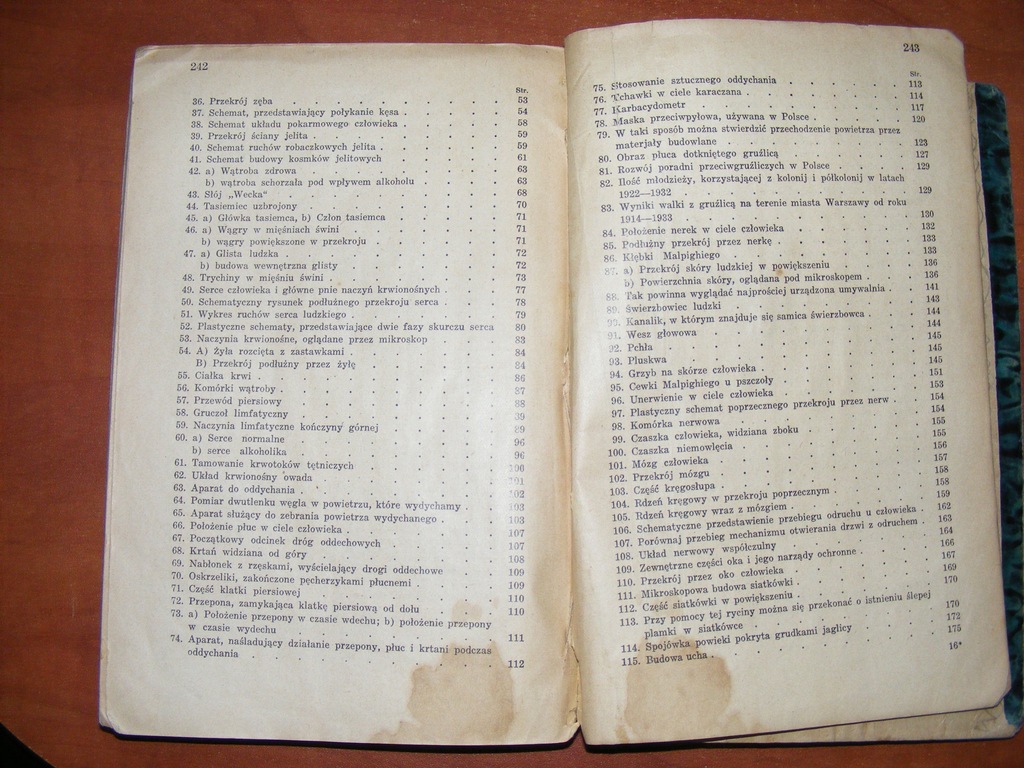 242
Str.
36. Przekrój zęba . . . . . . . . . . 53
37. Schemat, przedstawiający połykanie kęsa . . . . . 54
38. Schemat układu pokarmowego człowieka . . . . . 58
39. Przekrój ściany jelita . . . . . . . . 59
40. Schemat ruchów robaczkowych jelita . . . . . . 59
41. Schemat budowy kosmków jelitowych . . . . . 61
42. a) Wątroba zdrowa . . . . . . . . 63
b) wątroba schorzała pod wpływem alkoholu . . . . 63
43. Słój „Wecka" . . . . . . . . . 68
44. Tasiemiec uzbrojony . . . . . . . . 70
45. a) Główka tasiemca, b) Człon tasiemca . . . . . 71
46. a) Wągry w mięśniach świni . . . . . . . 71
b) wągry powiększone w przekroju . . . . . . 71
47. a) Glista ludzka . . . . . . . . . 72
b) budowa wewnętrzna glisty . . . . . . . 72
48. Trychiny w mięśniu świni . . . . . . . 73
49. Serce człowieka i główne pnie naczyń krwionośnych . . . 77
50. Schematyczny rysunek podłużnego przekroju serca . . . 78
51. Wykres ruchów serca ludzkiego . . . . . . 79
52. Plastyczne schematy, przedstawiające dwie fazy skurczu serca 80
53. Naczynia krwionośne, oglądane przez mikroskop . . . 83
54. A) Żyła rozcięta z zastawkami . . . . . . 84
B) Przekrój podłużny przez żyłę . . . . . . 84
55. Ciałka krwi . . . . . . . . . . 86
56. Komórki wątroby . . . . . . . . . 87
57. Przewód piersiowy . . . . . . . . . 88
58. Gruczoł limfatyczny . . . . . . . . 89
59. Naczynia limfatyczne kończyny górnej . . . . . 89
60. a) Serce normalne . . . . . . . . 96
b) serce alkoholika . . . . . . . . 96
61. Tamowanie krwotoków tętniczych . . . . . . 100
62. Układ krwionośny owada . . . . . . . 101
63. Aparat do oddychania . . . . . . . . 102
64. Pomiar dwutlenku węgla w powietrzu, które wydychamy . . 103
65. Aparat służący do zebrania powietrza wydychanego . . . 103
66. Położenie płuc w ciele człowieka . . . . . . 107
67. Początkowy odcinek dróg oddechowych . . . . . 107
68. Krtań widziana od góry . . . . . . . 108
69. Nabłonek z rzęskami, wyścielający drogi oddechowe . . . 109
70. Oskrzeliki, zakończone pęcherzykami płucnemi . . . . 109
71. Część klatki piersiowej . . . . . . . . 110
72. Przepona, zamykająca klatkę piersiową od dołu . . . 110
73. a) Położenie przepony w czasie wdechu; b) położenie przepony
w czasie wydechu . . . . . . . . 111
74. Aparat, naśladujący działanie przepony, płuc i krtani podczas
oddychania . . . . . . . . . . 112
243
Str.
75. Stosowanie sztucznego oddychania . . . . . . 113
76. Tchawki w ciele karaczana . . . . . . . 114
77. Karbacydometr . . . . . . . . . 117
78. Maska przeciwpyłowa, używana w Polsce . . . . . 120
79. W taki sposób można stwierdzić przechodzenie powietrza przez
materjały budowlane . . . . . . . . 123
80. Obraz płuca dotkniętego gruźlicą . . . . . . 127
81. Rozwój poradni przeciwgruźliczych w Polsce . . . . 129
82. Ilość młodzieży, korzystającej z kolonij i półkolonij w latach
1922—1932 . . . . . . . . . . 129
83. Wyniki walki z gruźlicą na terenie miasta Warszawy od roku
1914—1933 . . . . . . . . . . 130
84. Położenie nerek w ciele człowieka . . . . . . 132
85. Podłużny przekrój przez nerkę . . . . . . . 133
86. Kłębki Malpighiego . . . . . . . . 133
87. a) Przekrój skóry ludzkiej w powiększeniu . . . . 136
b) Powierzchnia skóry, oglądana pod mikroskopem . . . 136
88. Tak powinna wyglądać najprościej urządzona umywalnia . . 141
89. Świerzbowiec ludzki . . . . . . . . 143
90. Kanalik, w którym znajduje się samica świerzbowca . . . 144
91. Wesz głowowa . . . . . . . . . 144
92. Pchła . . . . . . . . . . . 145
93. Pluskwa . . . . . . . . . . 145
94. Grzyb na skórze człowieka . . . . . . . 145
95. Cewki Malpighiego u pszczoły . . . . . . . 151
96. Unerwienie w ciele człowieka . . . . . . . 153
97. Plastyczny schemat poprzecznego przekroju przez nerw . . 154
98. Komórka nerwowa . . . . . . . . 154
99. Czaszka człowieka, widziana zboku . . . . . 155
100. Czaszka niemowlęcia . . . . . . . . 155
101. Mózg człowieka . . . . . . . . . 156
102. Przekrój mózgu . . . . . . . . . 157
103. Część kręgosłupa . . . . . . . . . 158
104. Rdzeń kręgowy w przekroju poprzecznym . . . . . 158
105. Rdzeń kręgowy wraz z mózgiem . . . . . . 159
106. Schematyczne przedstawienie przebiegu odruchu u człowieka . 162
107. Porównaj przebieg mechanizmu otwierania drzwi z odruchem . 163
108. Układ nerwowy współczulny . . . . . . . 164
109. Zewnętrzne części oka i jego narządy ochronne . . . . 166
110. Przekrój przez oko człowieka . . . . . . . 167
111. Mikroskopowa budowa siatkówki . . . . . . 169
112. Część siatkówki w powiększeniu . . . . . . 170
113. Przy pomocy tej ryciny można się przekonać o istnieniu ślepej
plamki w siatkówce . . . . . . . . 170
114. Spojówka powieki pokryta grudkami jaglicy . . . . 172
115. Budowa ucha . . . . . . . . . . 175
16*